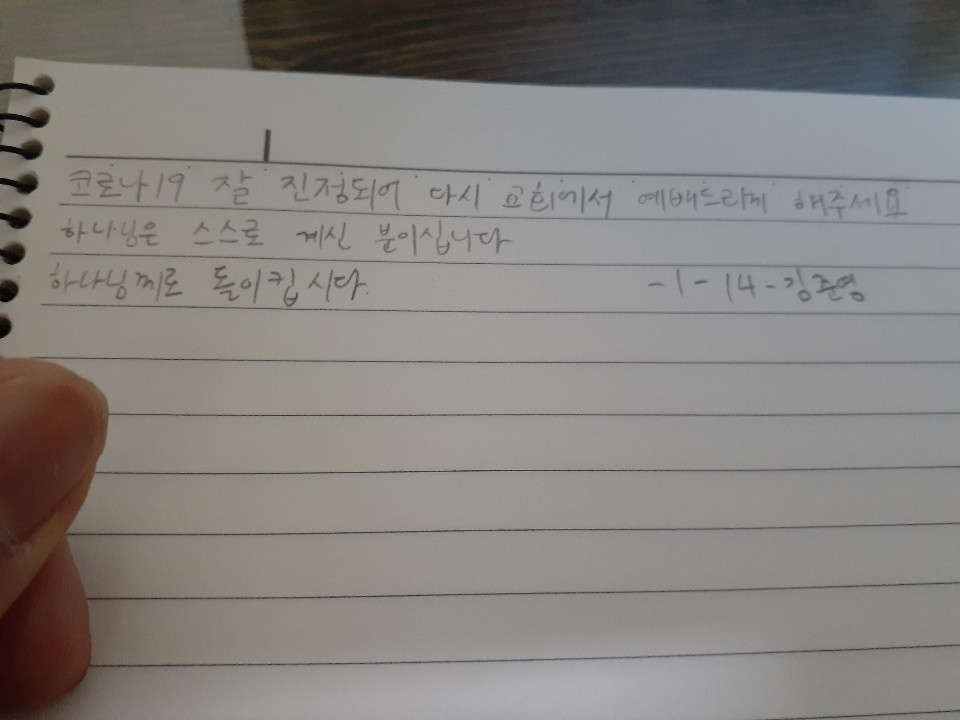 코로나19 잘 진정되어 다시 교회에서 예배드리게 해주세요
하나님은 스스로 계신 분이십니다
하나님께로 돌이킵시다. -1-14-김준영